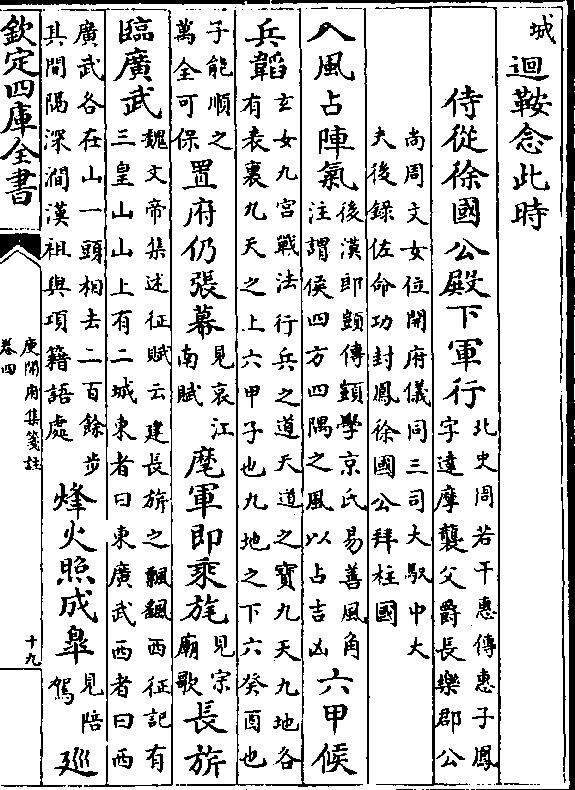 城迴鞍念此時
侍從徐國公殿下軍行北史周若干惠傳惠子鳳
字達摩襲父爵長樂郡公
尚周文女位開府儀同三司大馭中大
夫後錄佐命功封鳳徐國公拜柱國
八風占陣氣後漢郎顗傳顗學京氏易善風角
注謂候四方四隅之風以占吉凶六甲候
兵韜玄女九宮戰法行兵之道天道之寶九天九地各
有表裏九天之上六甲子也九地之下六癸酉也
子能順之
萬全可保置府仍張幕見哀江
南賦麾軍即乘旄見宗
廟歌長旂
臨廣武魏文帝集述征賦云建長旂之飄颻西征記有
三皇山山上有二城東者曰東廣武西者曰西
廣武各在山一頭相去二百餘步
其間隔深澗漢祖與項籍語處烽火照成臯見陪
駕廵
欽定四庫全書
庾開府集箋註
卷四
十九